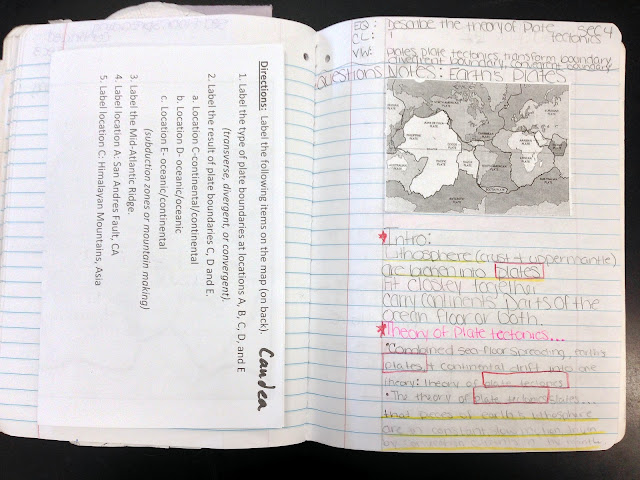 Directions: Label the following items on the map (on back).
Candea
1. Label the type of plate boundaries at locations A, B, C, D, and E
(transverse, divergent, or convergent).
2. Label the result of plate boundaries C, D and E.
a. Location C-continental/continental
b. Location D- oceanic/oceanic
c. Location E- oceanic/continental
(subduction zones or mountain making)
3. Label the Mid-Atlantic Ridge.
4. Label location A: San Andres Fault, CA
5. Label location C: Himalayan Mountains, Asia
EQ: Describe the theory of Plate sec 4
CL: 1 tectonics
VW: plates, plate tectonics, transform boundary
divergent boundary, convergent boundary
Questions Notes: Earth's Plates
Intro:
Lithosphere (crust + upper mantle)
are broken into plates
fit closley together
carry continents. Parts of the
ocean floor or both.
Theory of Plate tectonics...
• Combined sea-floor spreading, earth's
plates, + continental drift into one
theory: theory of plate tectonics
• The theory of plate tectonics states...
that pieces of earth's lithosphere
are in constant slow motion
by convection currents in the mantle